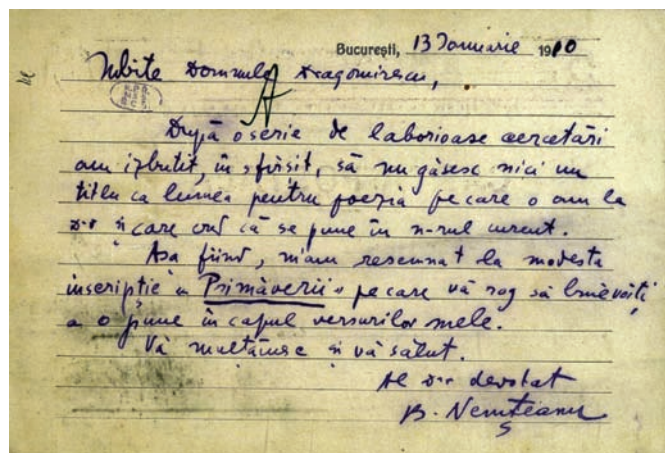 București, 13 Ianuarie 1910
Iubite Domnule Dragomirescu,
După o serie de laborioase cercetări
am izbutit, în sfîrșit, să nu găsesc nici un
titlu ca lumea pentru poezia pe care o am la
d-v și care cred că se pune în n-rul curent.
Asa fiind, m'am resemnat la modesta
inscripție „Primăverii" pe care vă rog să binevoiți
a o pune în capul versurilor mele.
Vă mulțămesc și vă salut.
Al d-v devotat
B. Nemțeanu